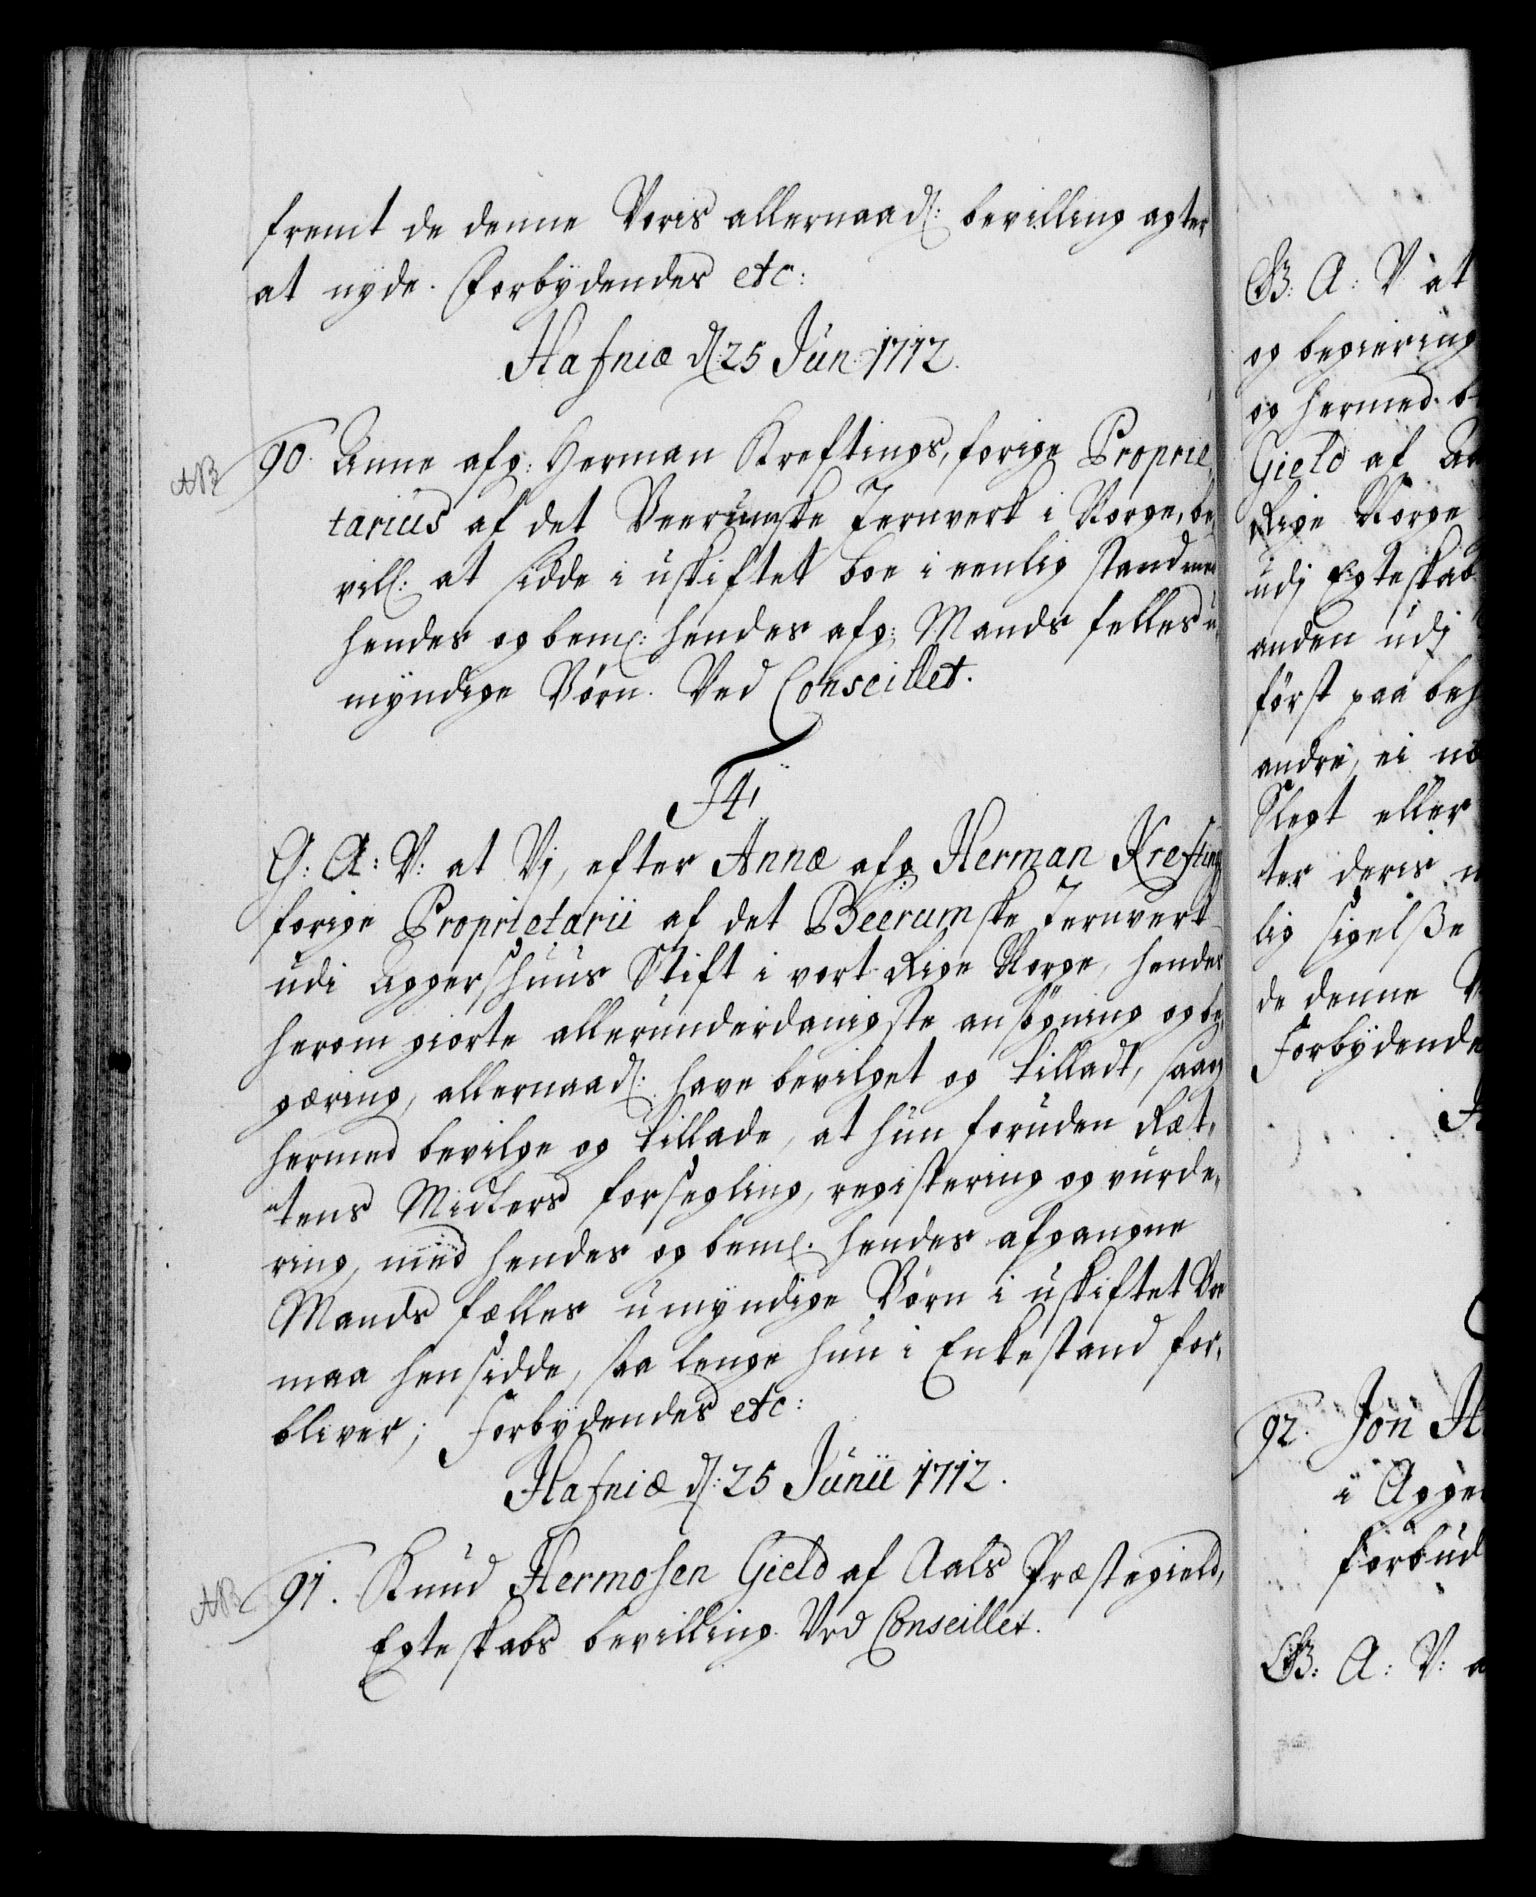 fremt de denne Voris allernaadl: bevilling agter
at nyde. Forbydendes etc:
Hafniæ d: 25 Jun: 1712.
NB 90. Anne afg: Herman Kreftings, forige Proprie,
tarius af det Beerumske Jernverk i Norge, be,
vill: at sidde i uskiftet boe i eenlig stand med
hendes og beml: hendes afg: Mands felles u,
myndige Børn. Ved Conseillet.
F4.
G: A: V: at Vj, efter Annæ afg: Herman Krefting
forige Proprietarii af det Beerumske Jernverk
udi Aggershuus Stift i vort Rige Norge, hendes
herom giorte allerunderdanigste ansøgning og be,
gæring, allernaadl: have bevilget og tilladt, saa og
hermed bevilge og tillade, at hun foruden Ræt,
tens Midlers forsegling, registering og vurde,
ring, med hendes og beml. hendes afgangne
Mands fælles umyndige Børn i uskiftet Boe
maa hensidde, saa lenge hun i Enkestand for,
bliver; Forbydendes etc:
Hafniæ d: 25 Junii 1712.
NB 91. Knud Hermosen Gield af Aals Præstegield,
Egteskabs bevilling. Ved Conseillet.
G: A: V at
og begiering
og hermed b
Gield af
Rige Norge
udj Egteskab
anden udj
først paa beh
andre, ei
Slegt eller
ter deris
lig sigelse
de denne
Forbydende
92. Jon H
i Agge
forbud
G: A: V: a